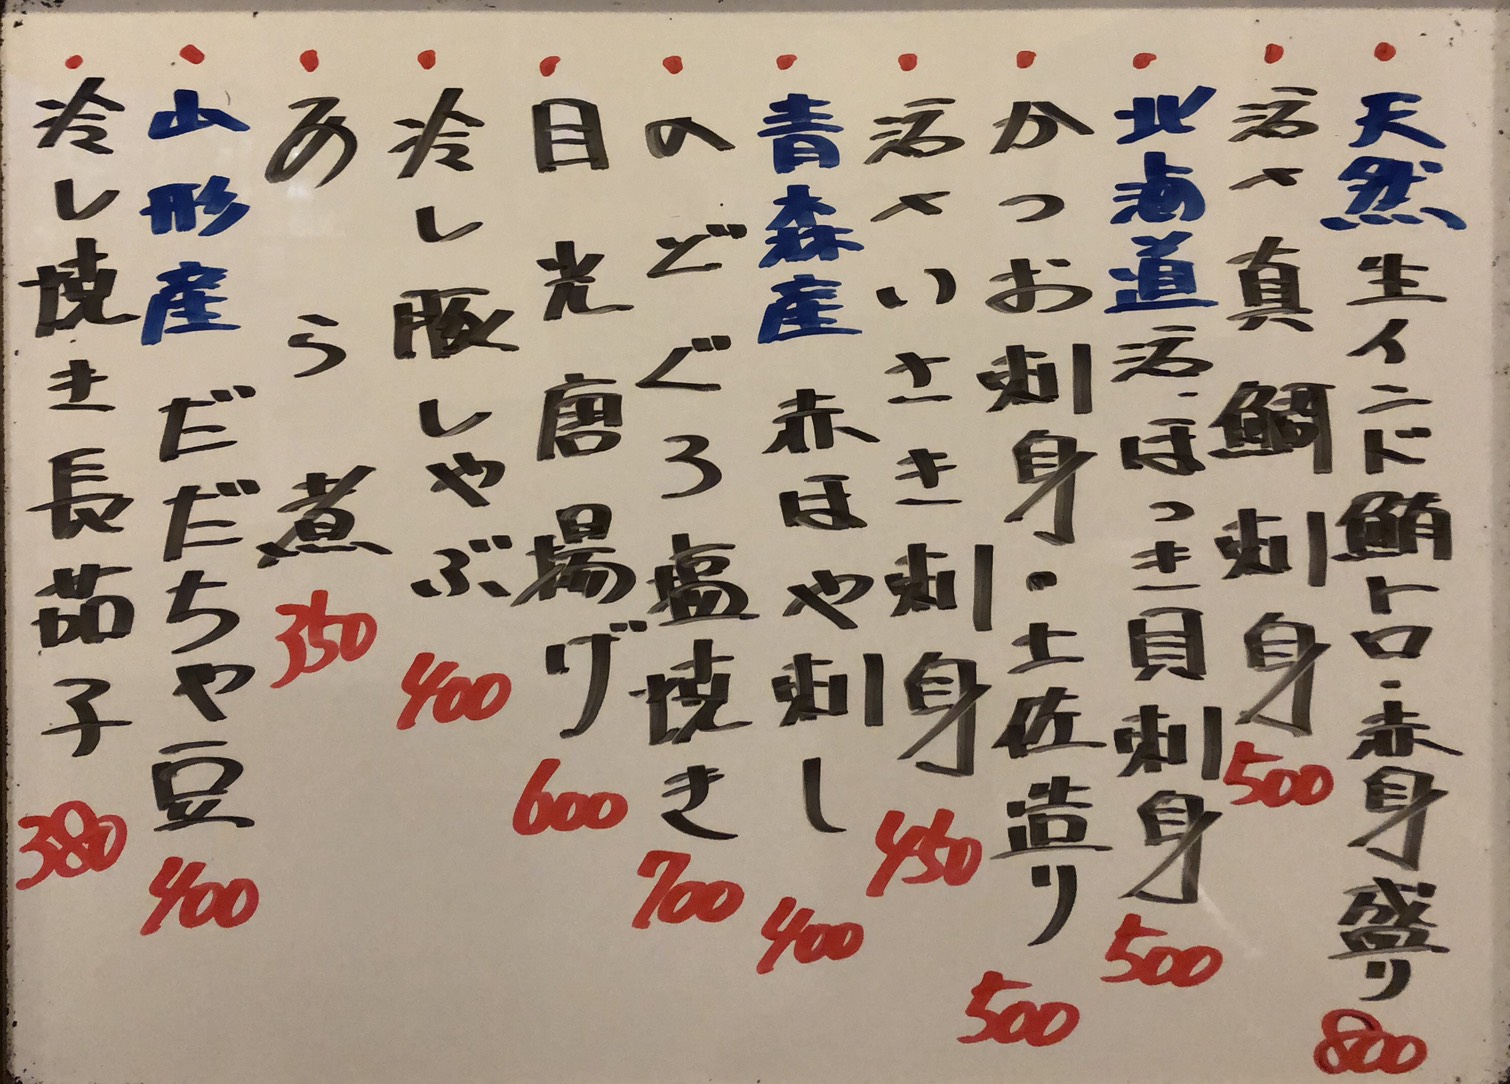 ・天然生インド鮪トロ・赤身盛り 800
・活〆真鯛刺身 500
・北海道活・ほっき貝刺身 500
・かつお刺身・土佐造り 500
・活〆いさき刺身 450
・青森産赤ほや刺し 400
・のどぐろ塩焼き 700
・目光唐揚げ 600
・冷し豚しゃぶ 400
・あら煮 350
・山形産だだちゃ豆 400
・冷し焼き長茄子 380